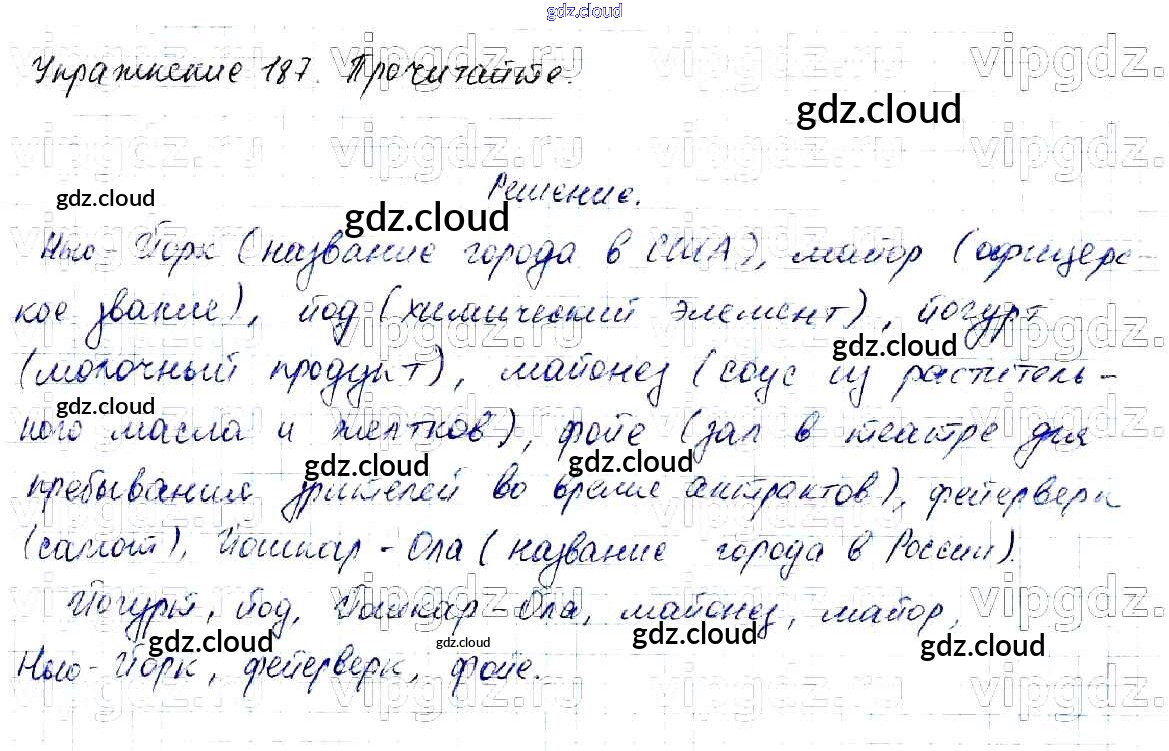 gdz.cloud
Упражнение 187. Прочитайте.
vipgdz.ru vipgdz.ru vipgdz.ru vipgdz.
gdz.cloud
vipgdz.ru vipgdz.ru vipgdz.ru vipgdz.
Решение.
gdz.cloud
gdz.cloud
Нью-Йорк (название города в США), майор (офицерс-
кое звание), йод (химический элемент), йогурт
gdz.cloud
(молочный продукт), майонез (соус из раститель-
gdz.cloud
ного масла и желтков), фойе (зал в театре для
gdz.cloud gdz.cloud
пребывания зрителей во время антрактов), фейерверк
(салют), Йошкар-Ола (название города в России).
Йогурт, йод, Йошкар-Ола, майонез, майор,
gdz.cloud gdz.cloud gdz.cloud gdz.cloud
Нью-Йорк, фейерверк, фойе.
vipgdz.ru vipgdz.ru vipgdz.ru vipgdz.